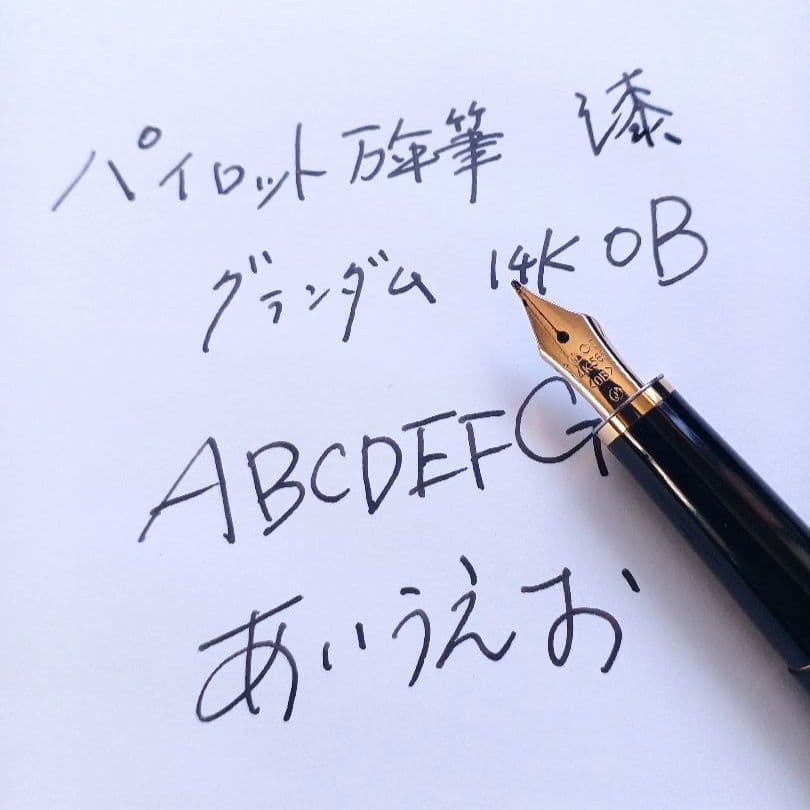 パイロット万年筆 漆
グランダム 14K OB
ABCDEFG
あいうえお